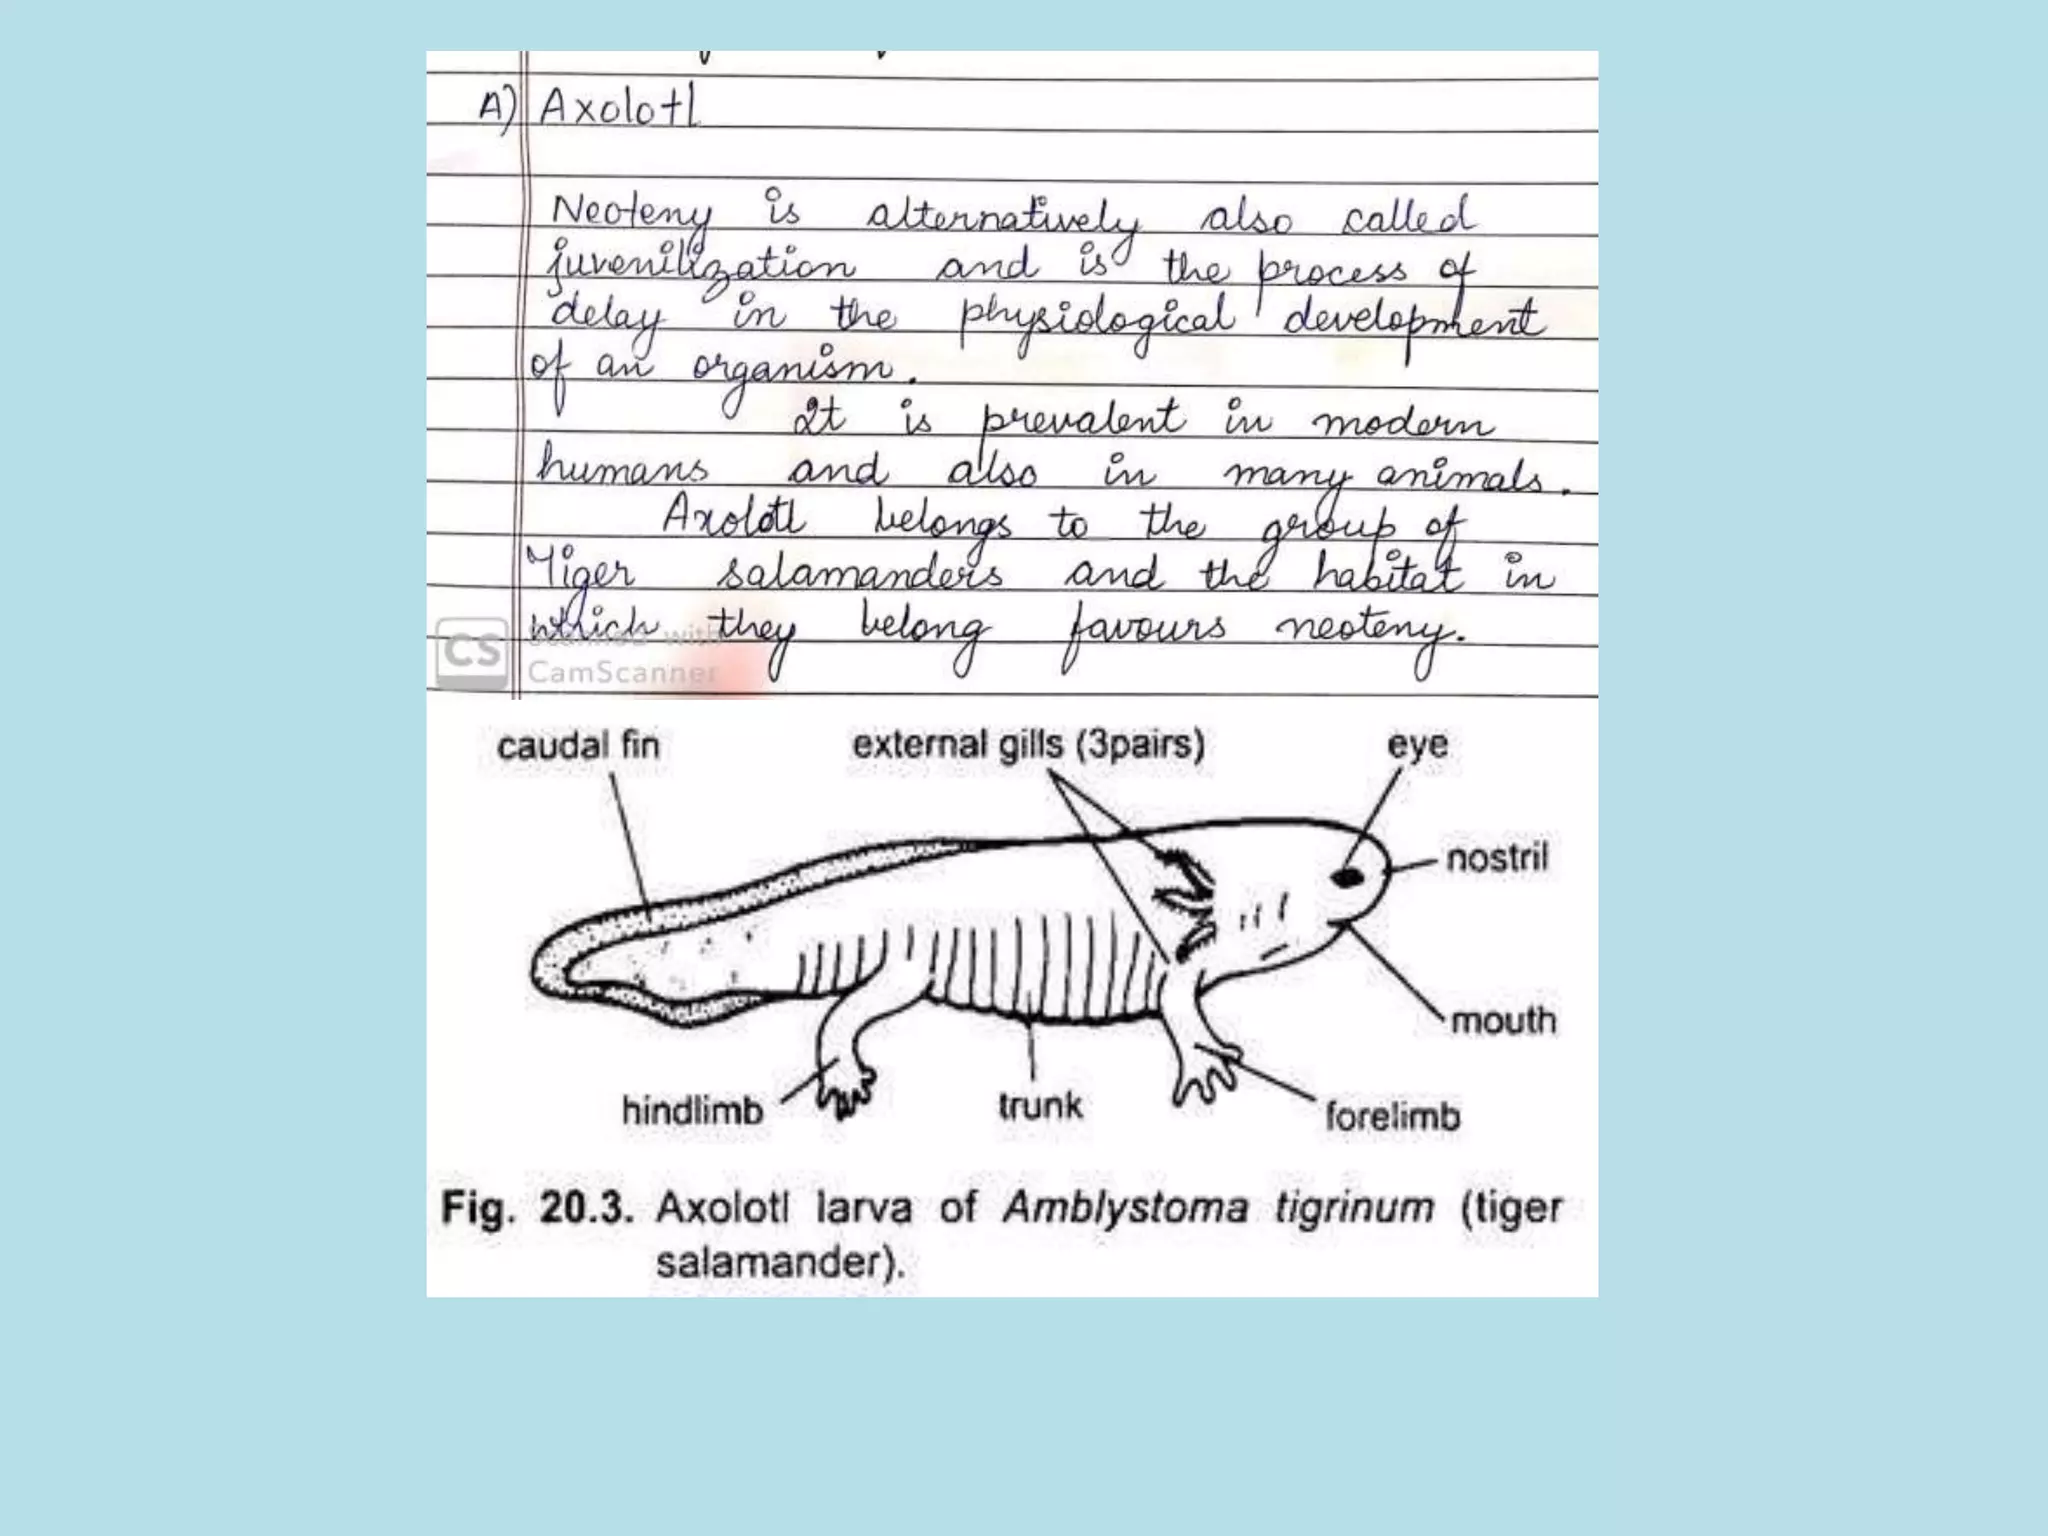 A) Axolotl
Neoteny is alternatively also called
juvenilization and is the process of
delay in the physiological development
of an organism.
It is prevalent in modern
humans and also in many animals.
Axolotl belongs to the group of
Tiger salamanders and the habitat in
which they belong favours neoteny.
CS Scanned with
CamScanner
caudal fin
external gills (3pairs)
eye
nostril
mouth
hindlimb
trunk
forelimb
Fig. 20.3. Axolotl larva of Amblystoma tigrinum (tiger
salamander).